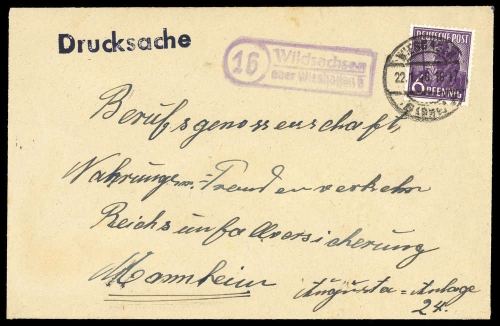 Drucksache
16 Wildsachsen
über Wiesbaden 5
DEUTSCHE POST
6 PFENNIG
WIESBADEN
22.
Berufsgenossenschaft
Nahrungs u. Fremdenverkehr
Reichsunfallversicherung
Mannheim
Augusta=Anlage
24.